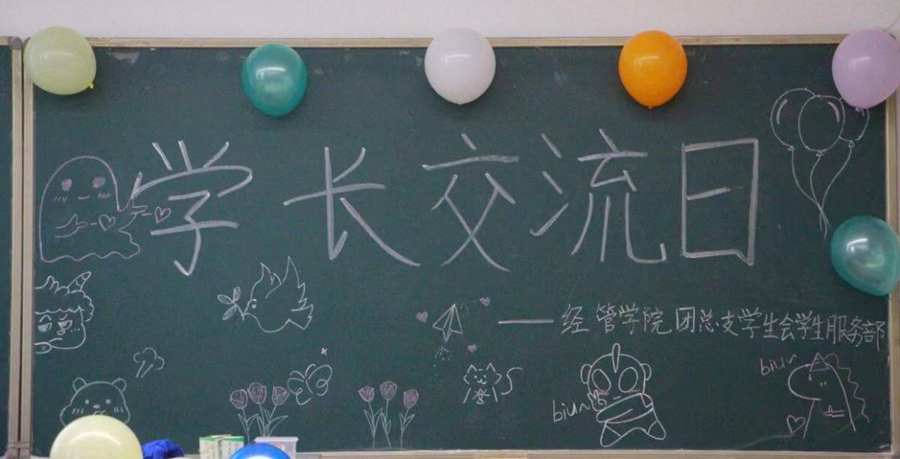 学长交流日
——经管学院团总支学生会学生服务部
biu~
biu~